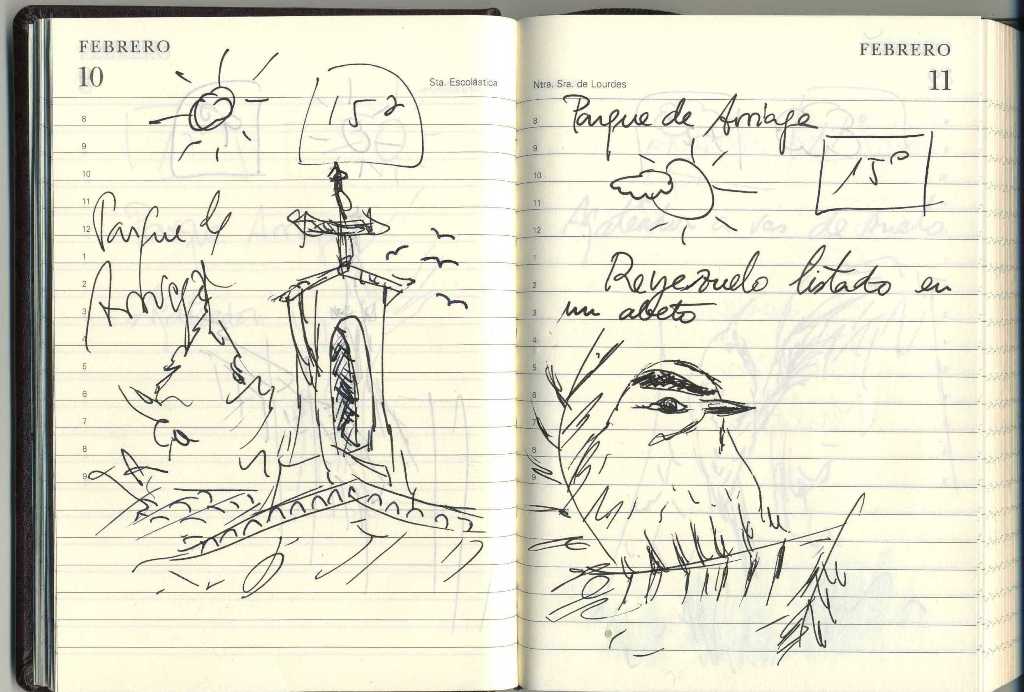 FEBRERO
10
Sta. Escolástica
15º
Parque de
Arriaga
8
9
10
11
12
1
2
3
4
5
6
7
8
9
FEBRERO
11
Ntra. Sra. de Lourdes
Parque de Arriaga
15º
Reyezuelo listado en
un abeto
8
9
10
11
12
1
2
3
4
5
6
7
8
9